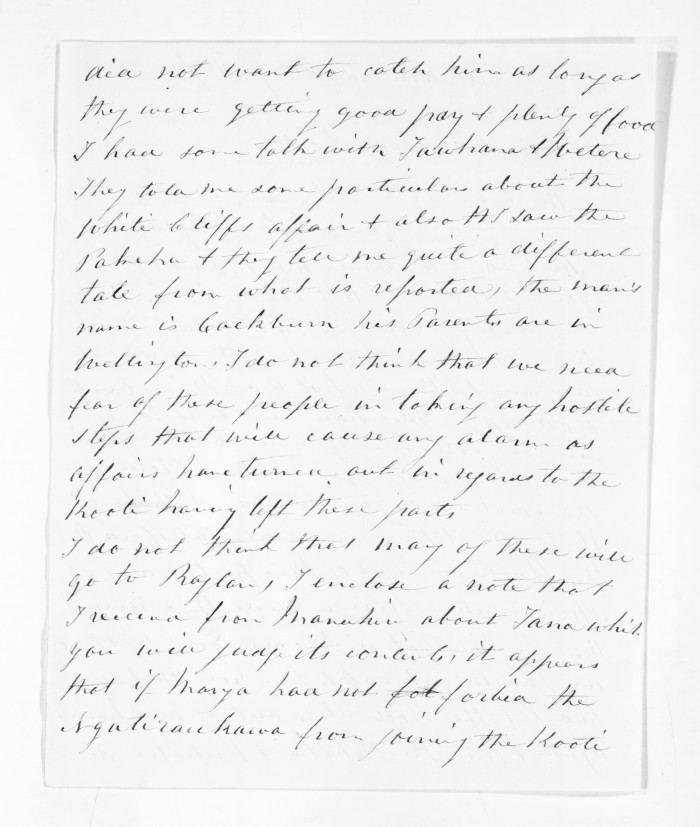 did not want to catch him as long as
they were getting good pay & plenty of food
I had some talk with Tawhana & Hetere
They told me some particulars about the
White Cliffs affair & also saw the
Pakeha & they tell me quite a different
tale from what is reported, the man's
name is Cackburn his Parents are in
Wellington. I do not think that we need
fear of these people in taking any hostile
steps that will cause any alarm as
affairs have turned out in regards to the
Kooti having left these parts
I do not think that many of these will
go to Raglan, I enclose a note that
I received from Manahiri about Tana which
you will judge its contents, it appears
that if Manga had not forbid the
Ngatiraukawa from joining the Kooti